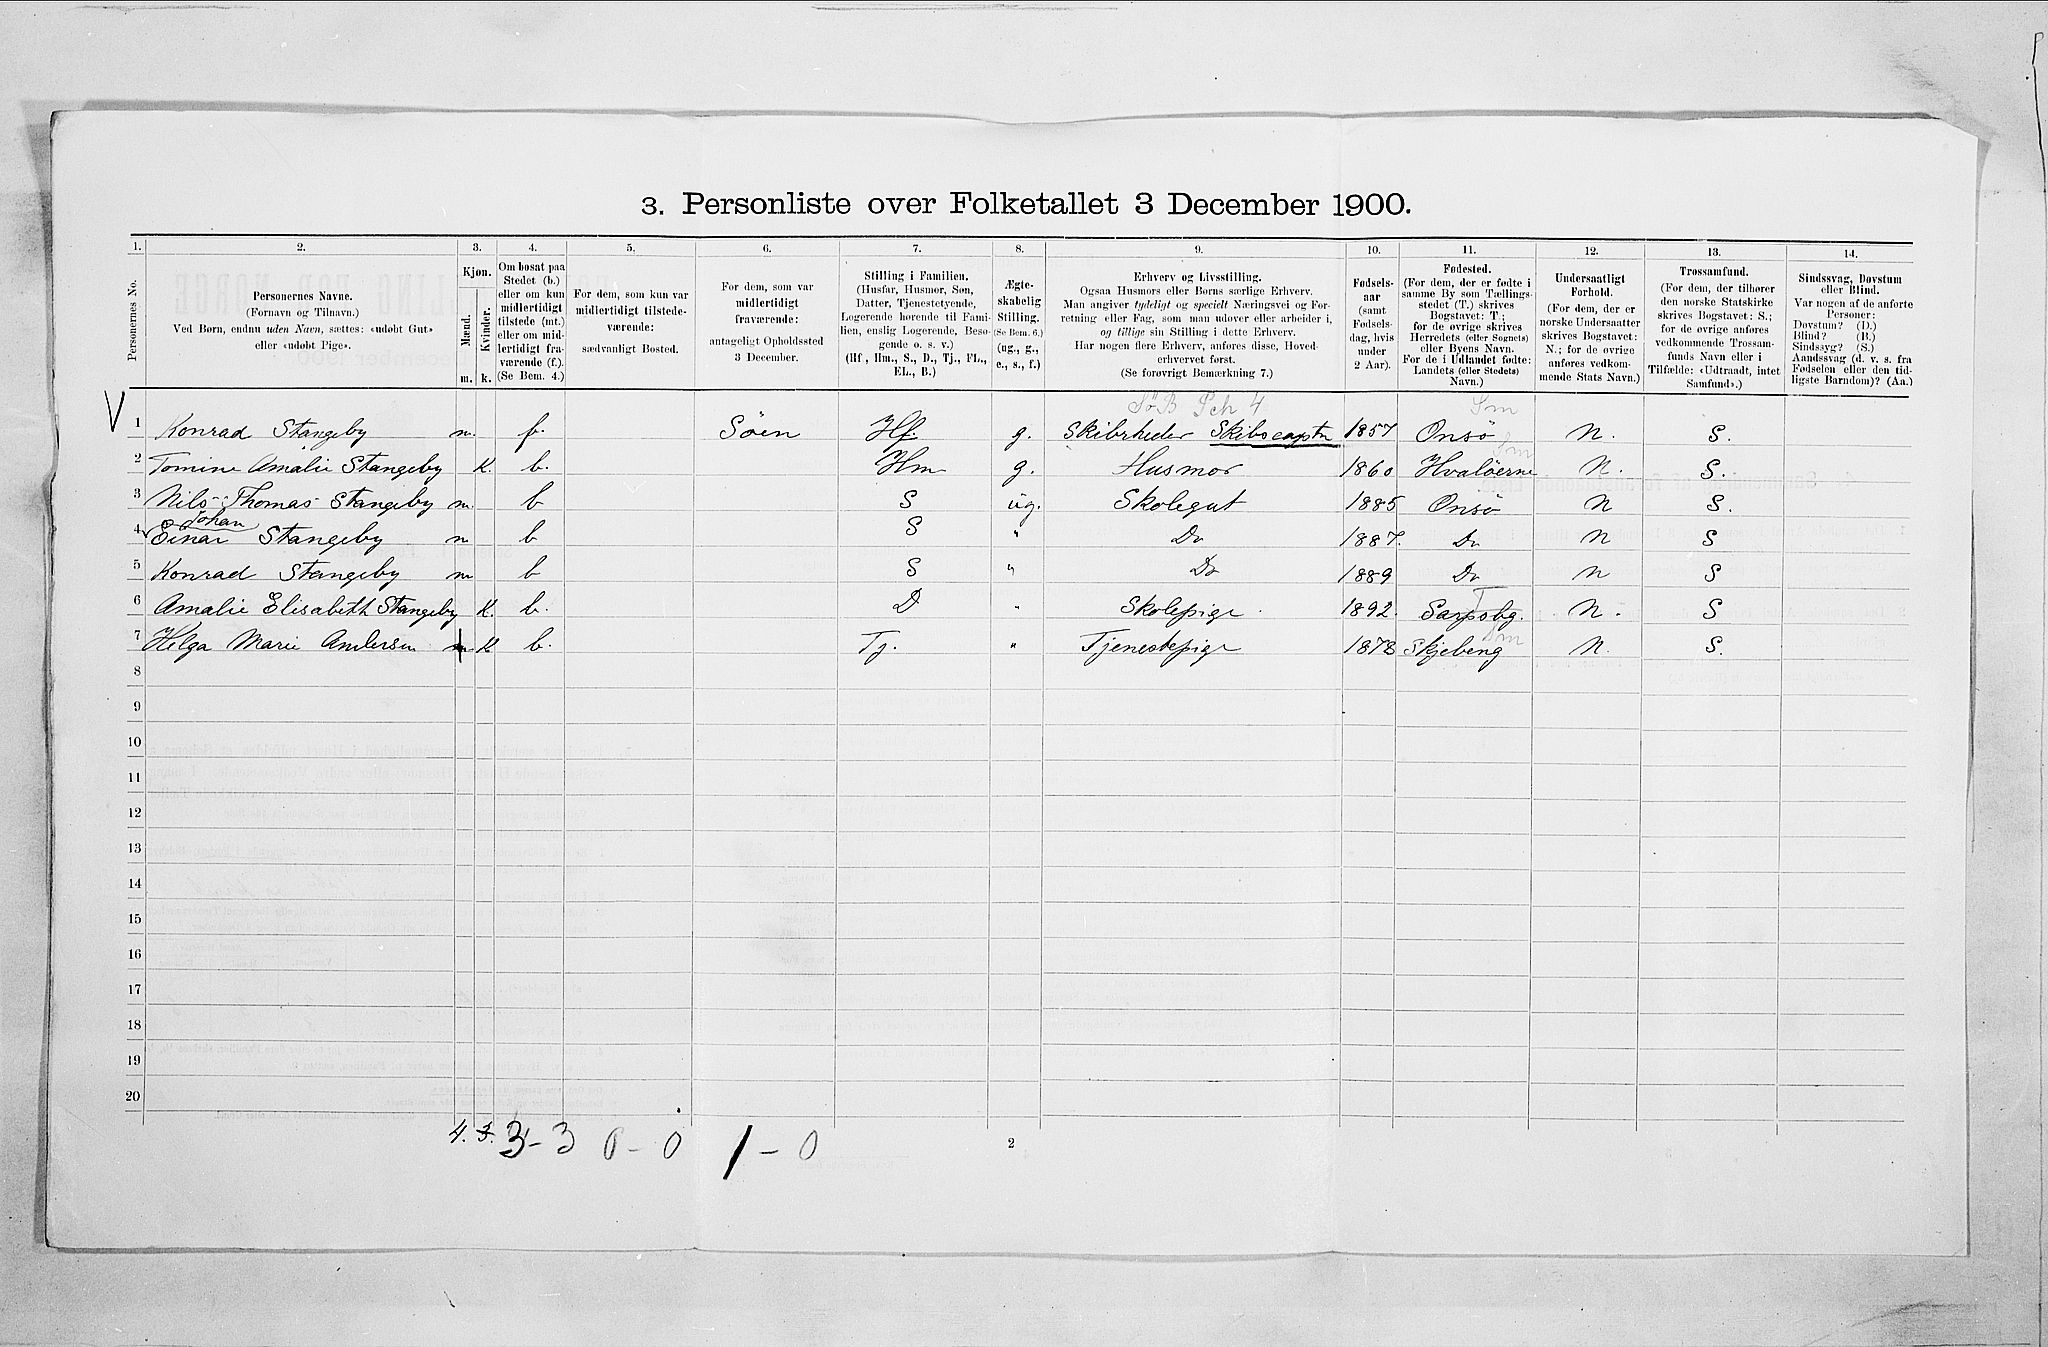 3. Personliste over Folketallet 3 December 1900.
1. 2. 3. 4. 5. 6. 7. 8. 9. 10. 11. 12. 13. 14.
Personernes No.
Personernes Navne.
(Fornavn og Tilnavn.)
Ved Børn, endnu uden Navn, sættes: «udøbt Gut»
eller «udøbt Pige».
Kjøn.
Mænd.
Kvinder.
m. k.
Om bosat paa
Stedet (b.)
eller om kun
midlertidigt
tilstede (mt.)
eller om mid-
lertidigt fra-
værende (f.).
(Se Bem. 4.)
For dem, som kun var
midlertidigt tilstede-
værende:
sædvanligt Bosted.
For dem, som var
midlertidigt
fraværende:
antageligt Opholdssted
3 December.
Stilling i Familien.
(Husfar, Husmor, Søn,
Datter, Tjenestetyende,
Logerende hørende til Fami-
lien, enslig Logerende, Besø-
gende o. s. v.)
(Hf., Hm., S., D., Tj., FL.,
EL., B.)
Ægte-
skabelig
Stilling.
(Se Bem. 6.)
(ug., g.,
e., s., f.)
Erhverv og Livsstilling.
Ogsaa Husmors eller Børns særlige Erhverv.
Man angiver tydeligt og specielt Næringsvei og For-
retning eller Fag, som man udøver eller arbeider i,
og tillige sin Stilling i dette Erhverv.
Har nogen flere Erhverv, anføres disse, Hoved-
erhvervet først.
(Se forøvrigt Bemærkning 7.)
Fødsels-
aar
(samt
Fødsels-
dag, hvis
under
2 Aar).
Fødested.
(For dem, der er fødte i
samme By som Tællings-
stedet (T.) skrives
Bogstavet: T.;
for de øvrige skrives
Herredets (eller Sognets)
eller Byens Navn.
For de i Udlandet fødte:
Landets (eller Stedets)
Navn.)
Undersaatligt
Forhold.
(For dem, der er
norske Undersaatter
skrives Bogstavet:
N.; for de øvrige
anføres vedkom-
mende Stats Navn.)
Trossamfund.
(For dem, der tilhører
den norske Statskirke
skrives Bogstavet: S.;
for de øvrige anføres
vedkommende Trossam-
funds Navn eller i
Tilfælde: «Udtraadt, intet
Samfund».)
Sindssvag, Døvstum
eller Blind.
Var nogen af de anførte
Personer:
Døvstum? (D.)
Blind? (B.)
Sindssyg? (S.)
Aandssvag (d. v. s. fra
Fødselen eller den tid-
ligste Barndom)? (Aa.)
V SöB Sch 4 Sm
1 Konrad Stangeby m. f. Söen Hf. g. Skibsrheder Skibscaptn 1857 Onsö N. S.
Sm
2 Tomine Amalie Stangeby K. b. Hm g. Husmor 1860 Hvalöerne N. S.
3 Nils Thomas Stangeby m. b S ug. Skolegut 1885 Onsö N S.
Johan
4 Einar Stangeby m b S " Do 1887. Do N S
5 Konrad Stangeby m b S " Do 1889 Do N S
T
6 Amalie Elisabeth Stangeby K. b. D " Skolepige. 1892. Sarpsbg. N. S
Sm
7 Helga Marie Andersen m K b. Tj. " Tjenestepige 1878 Skjeberg N. S.
8
9
10
11
12
13
14
15
16
17
18
19
20
4. 3. 3-3 0-0 1-0
2